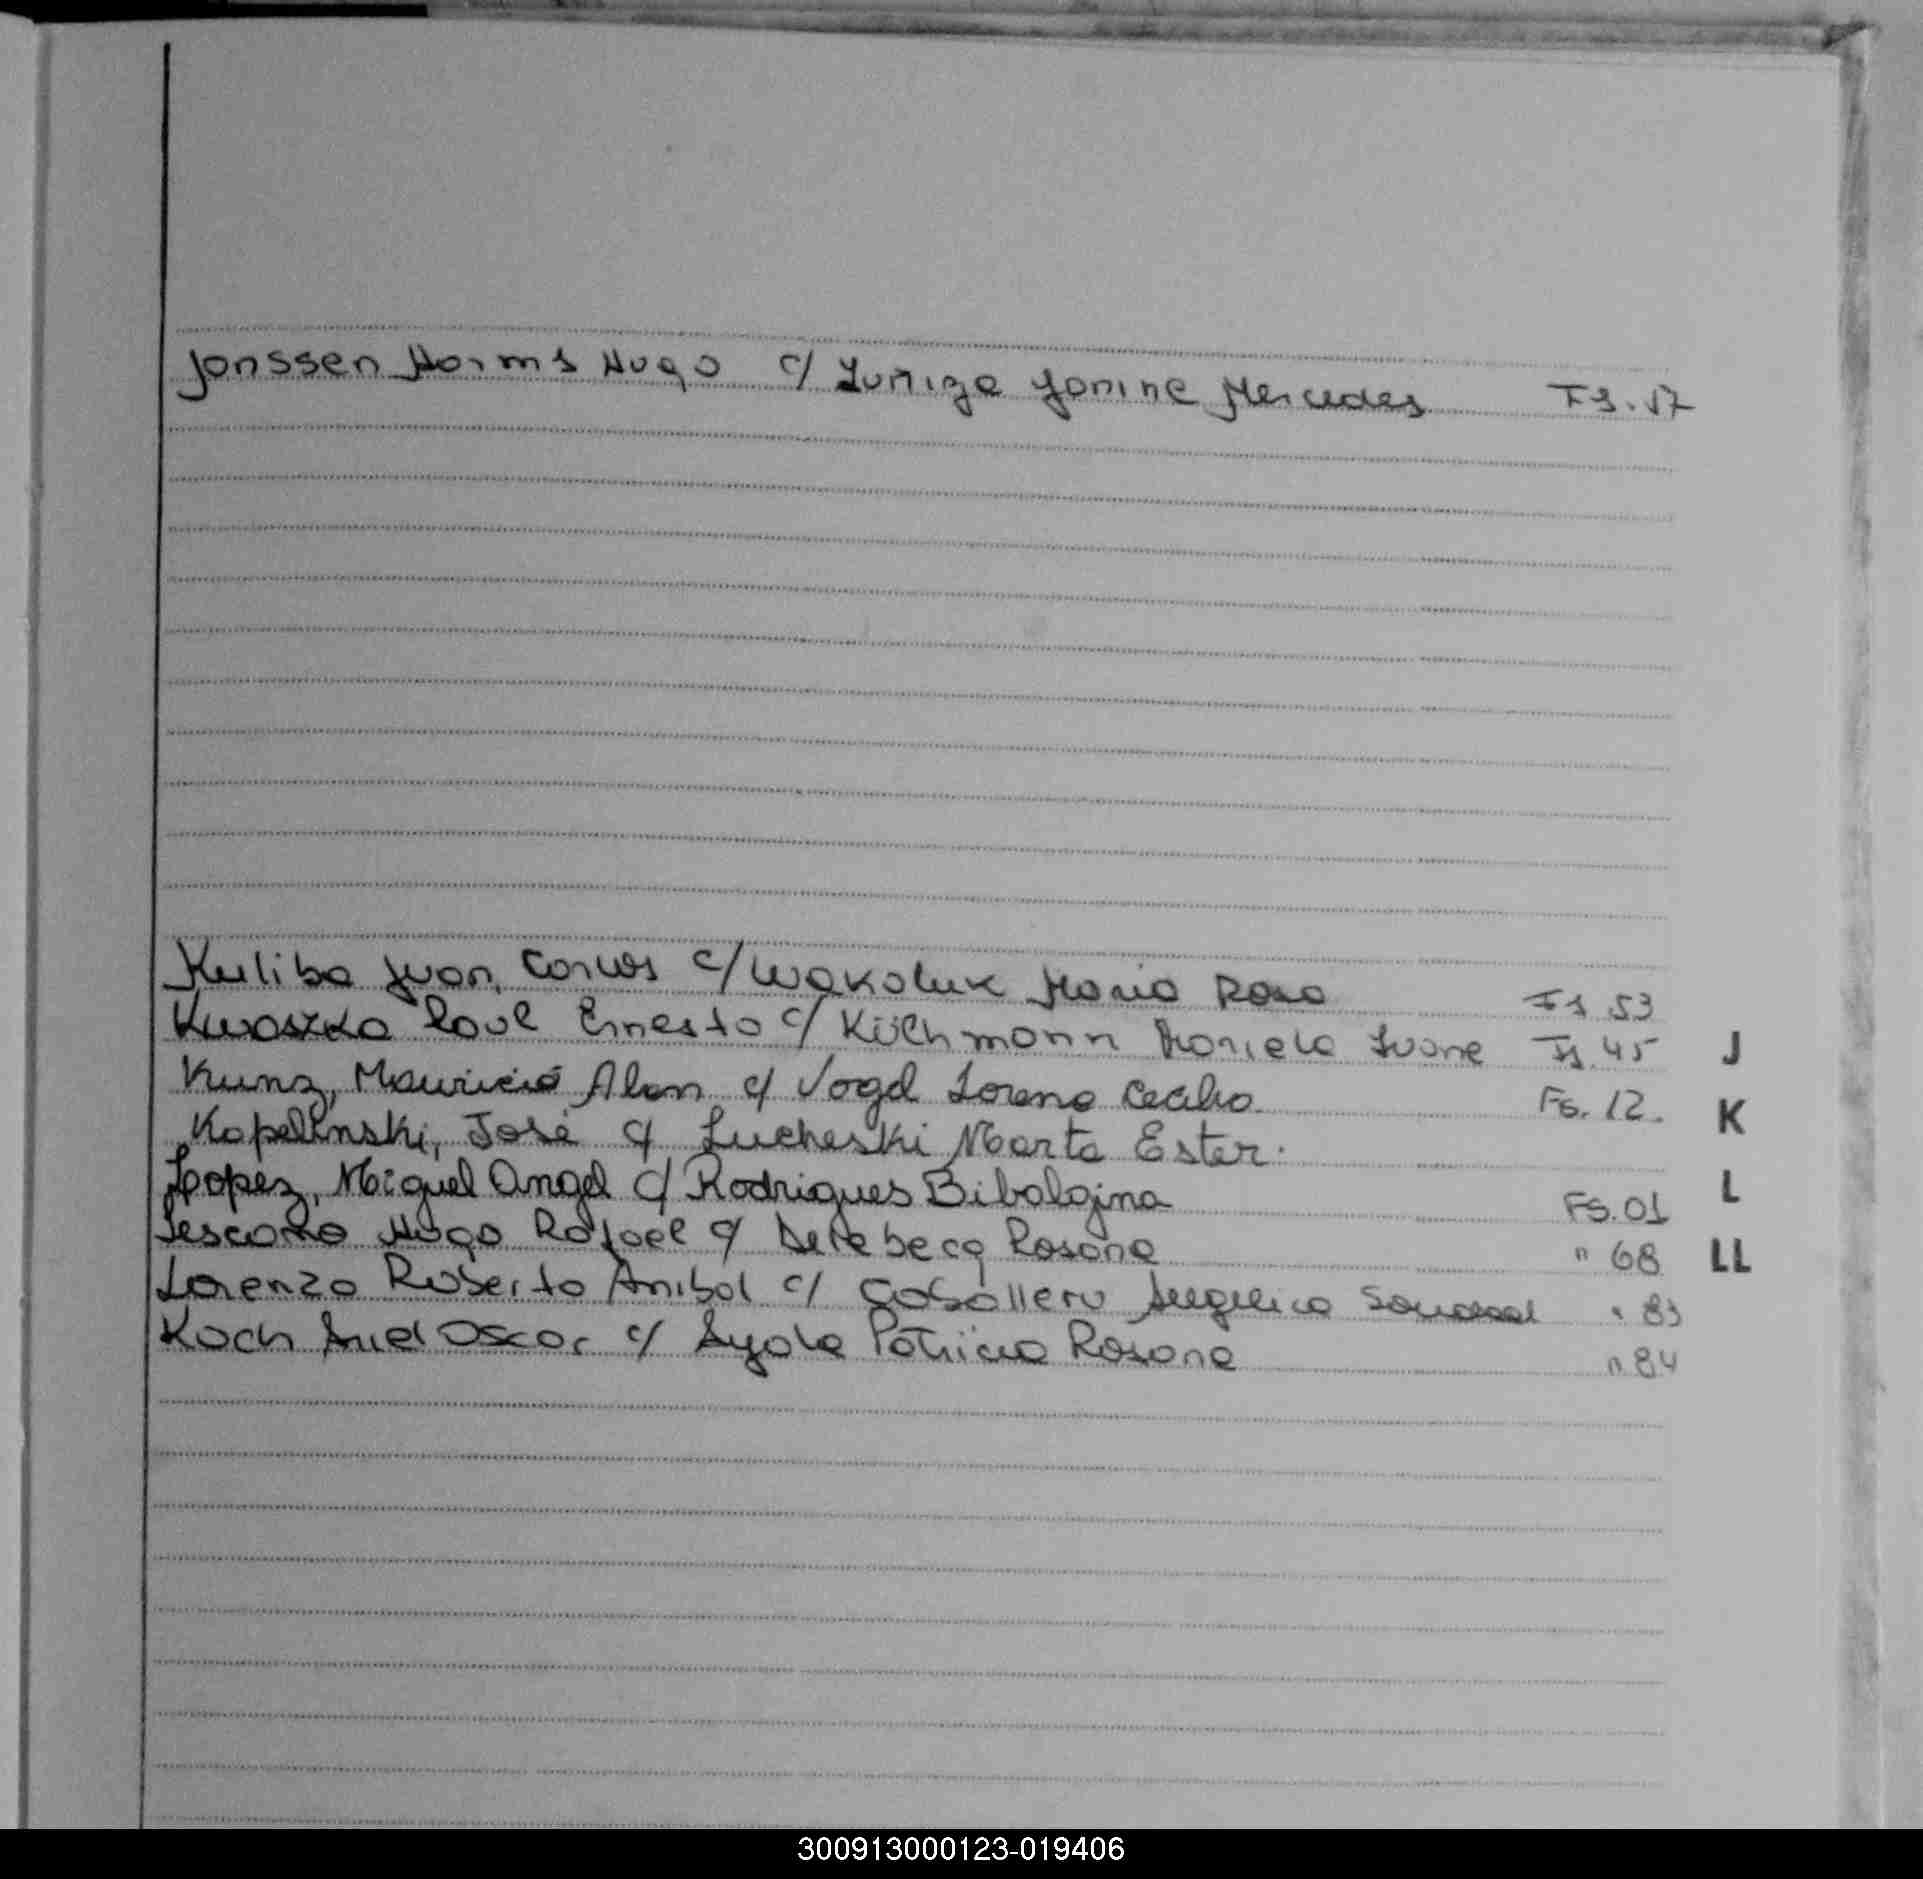 Janssen Harms Hugo c/ Zuñiga Janine Mercedes Fs. 17
Kuliba Juan Carlos c/ Wakoluk Maria Rosa Fs 53
Kwaszka Raul Ernesto c/ Küchmann Mariela Ivone Fs. 45
Kunz, Mauricio Alan c/ Vogel Lorena Cecilia Fs. 12.
Kapelinski, José c/ Lucheski Marta Ester.
Lopez, Miguel Angel c/ Rodrigues Bibalgina Fs. 01
Lescano Hugo Rafael c/ Rosana " 68
Lorenzo Roberto Anibal c/ Caballero Angelica " 83
Koch Ariel Oscar c/ Ayala Patricia Rosana " 84
J
K
L
LL
300913000123-019406